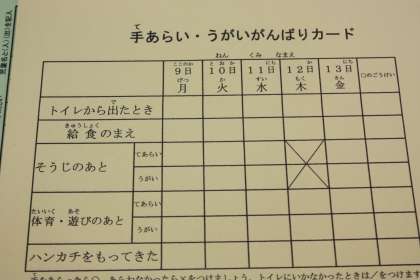 手あらい・うがいがんばりカード
ねん くみ なまえ
9日 10日 11日 12日 13日 ○のごうけい
月 火 水 木 金
トイレから出たとき
給食のまえ
そうじのあと てあらい
うがい
体育・遊びのあと てあらい
うがい
ハンカチをもってきた